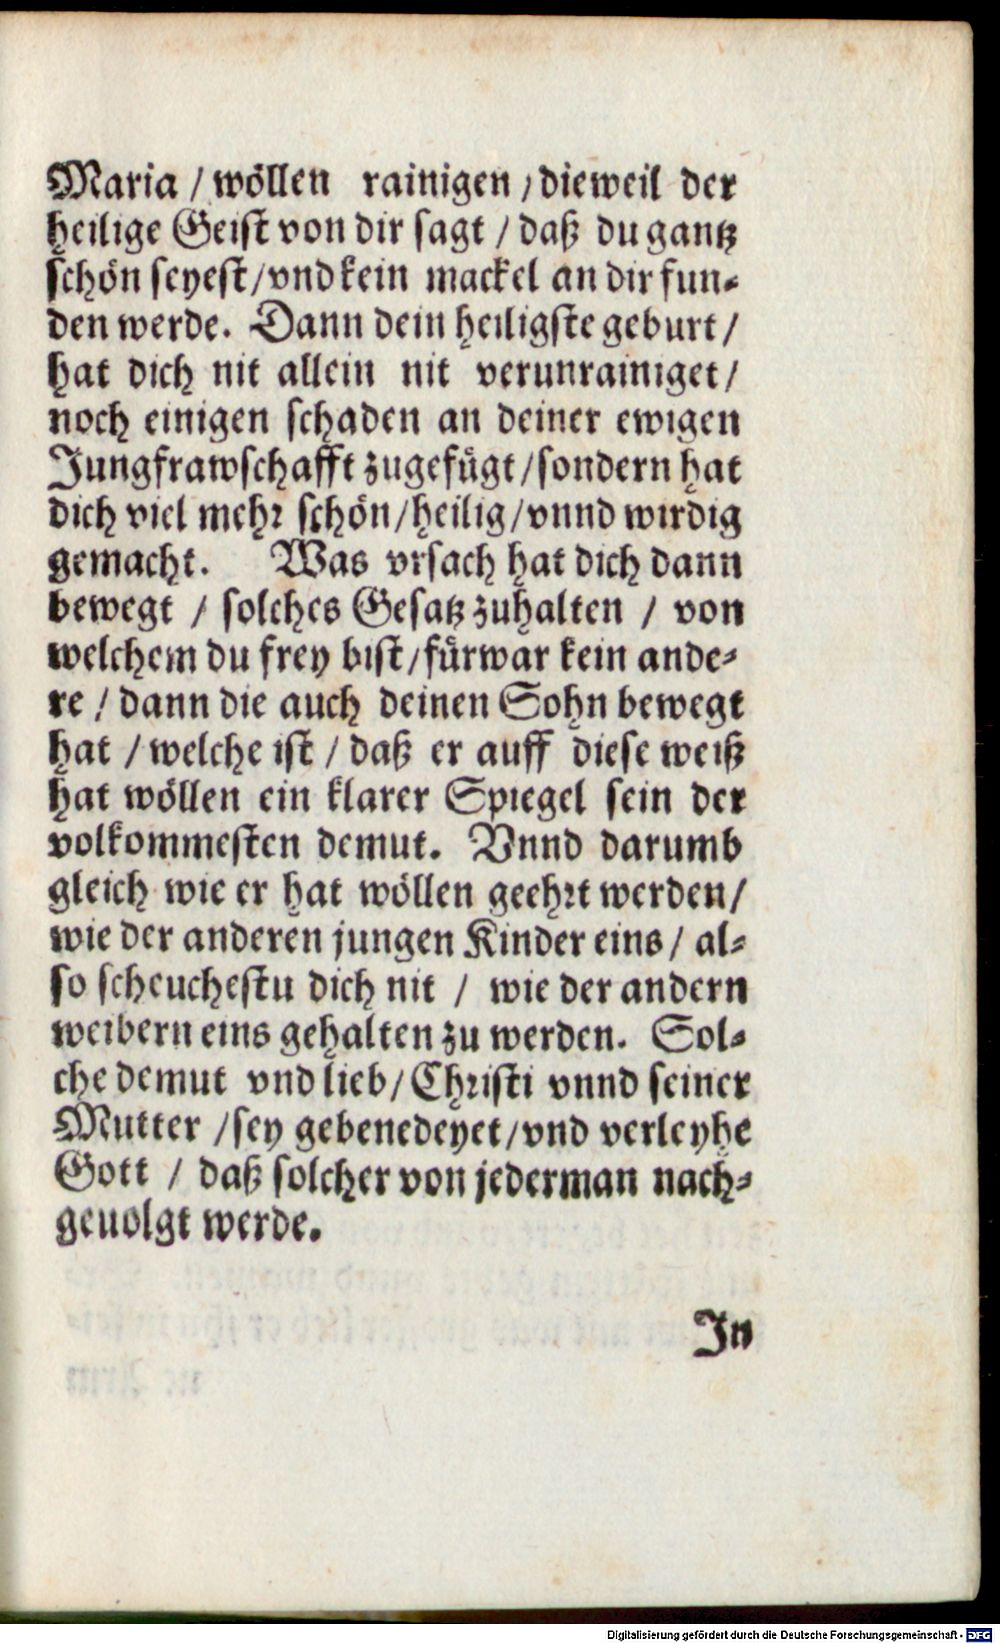 Maria / wöllen rainigen / dieweil der
heilige Geist von dir sagt / daß du gantz
schön seyest / vnd kein mackel an dir fun-
den werde. Dann dein heiligste geburt /
hat dich nit allein nit verunrainiget /
noch einigen schaden an deiner ewigen
Jungfrawschafft zugefügt / sondern hat
dich viel mehr schön / heilig / vnnd wirdig
gemacht. Was vrsach hat dich dann
bewegt / solches Gesatz zuhalten / von
welchem du frey bist / fürwar kein ande-
re / dann die auch deinen Sohn bewegt
hat / welche ist / daß er auff diese weiß
hat wöllen ein klarer Spiegel sein der
volkommesten demut. Vnnd darumb
gleich wie er hat wöllen geehrt werden /
wie der anderen jungen Kinder eins / al-
so scheuchestu dich nit / wie der andern
weibern eins gehalten zu werden. Sol-
che demut vnd lieb / Christi vnnd seiner
Mutter / sey gebenedeyet / vnd verleyhe
Gott / daß solcher von jederman nach-
geuolgt werde.
In
Digitalisierung gefördert durch die Deutsche Forschungsgemeinschaft - DFG